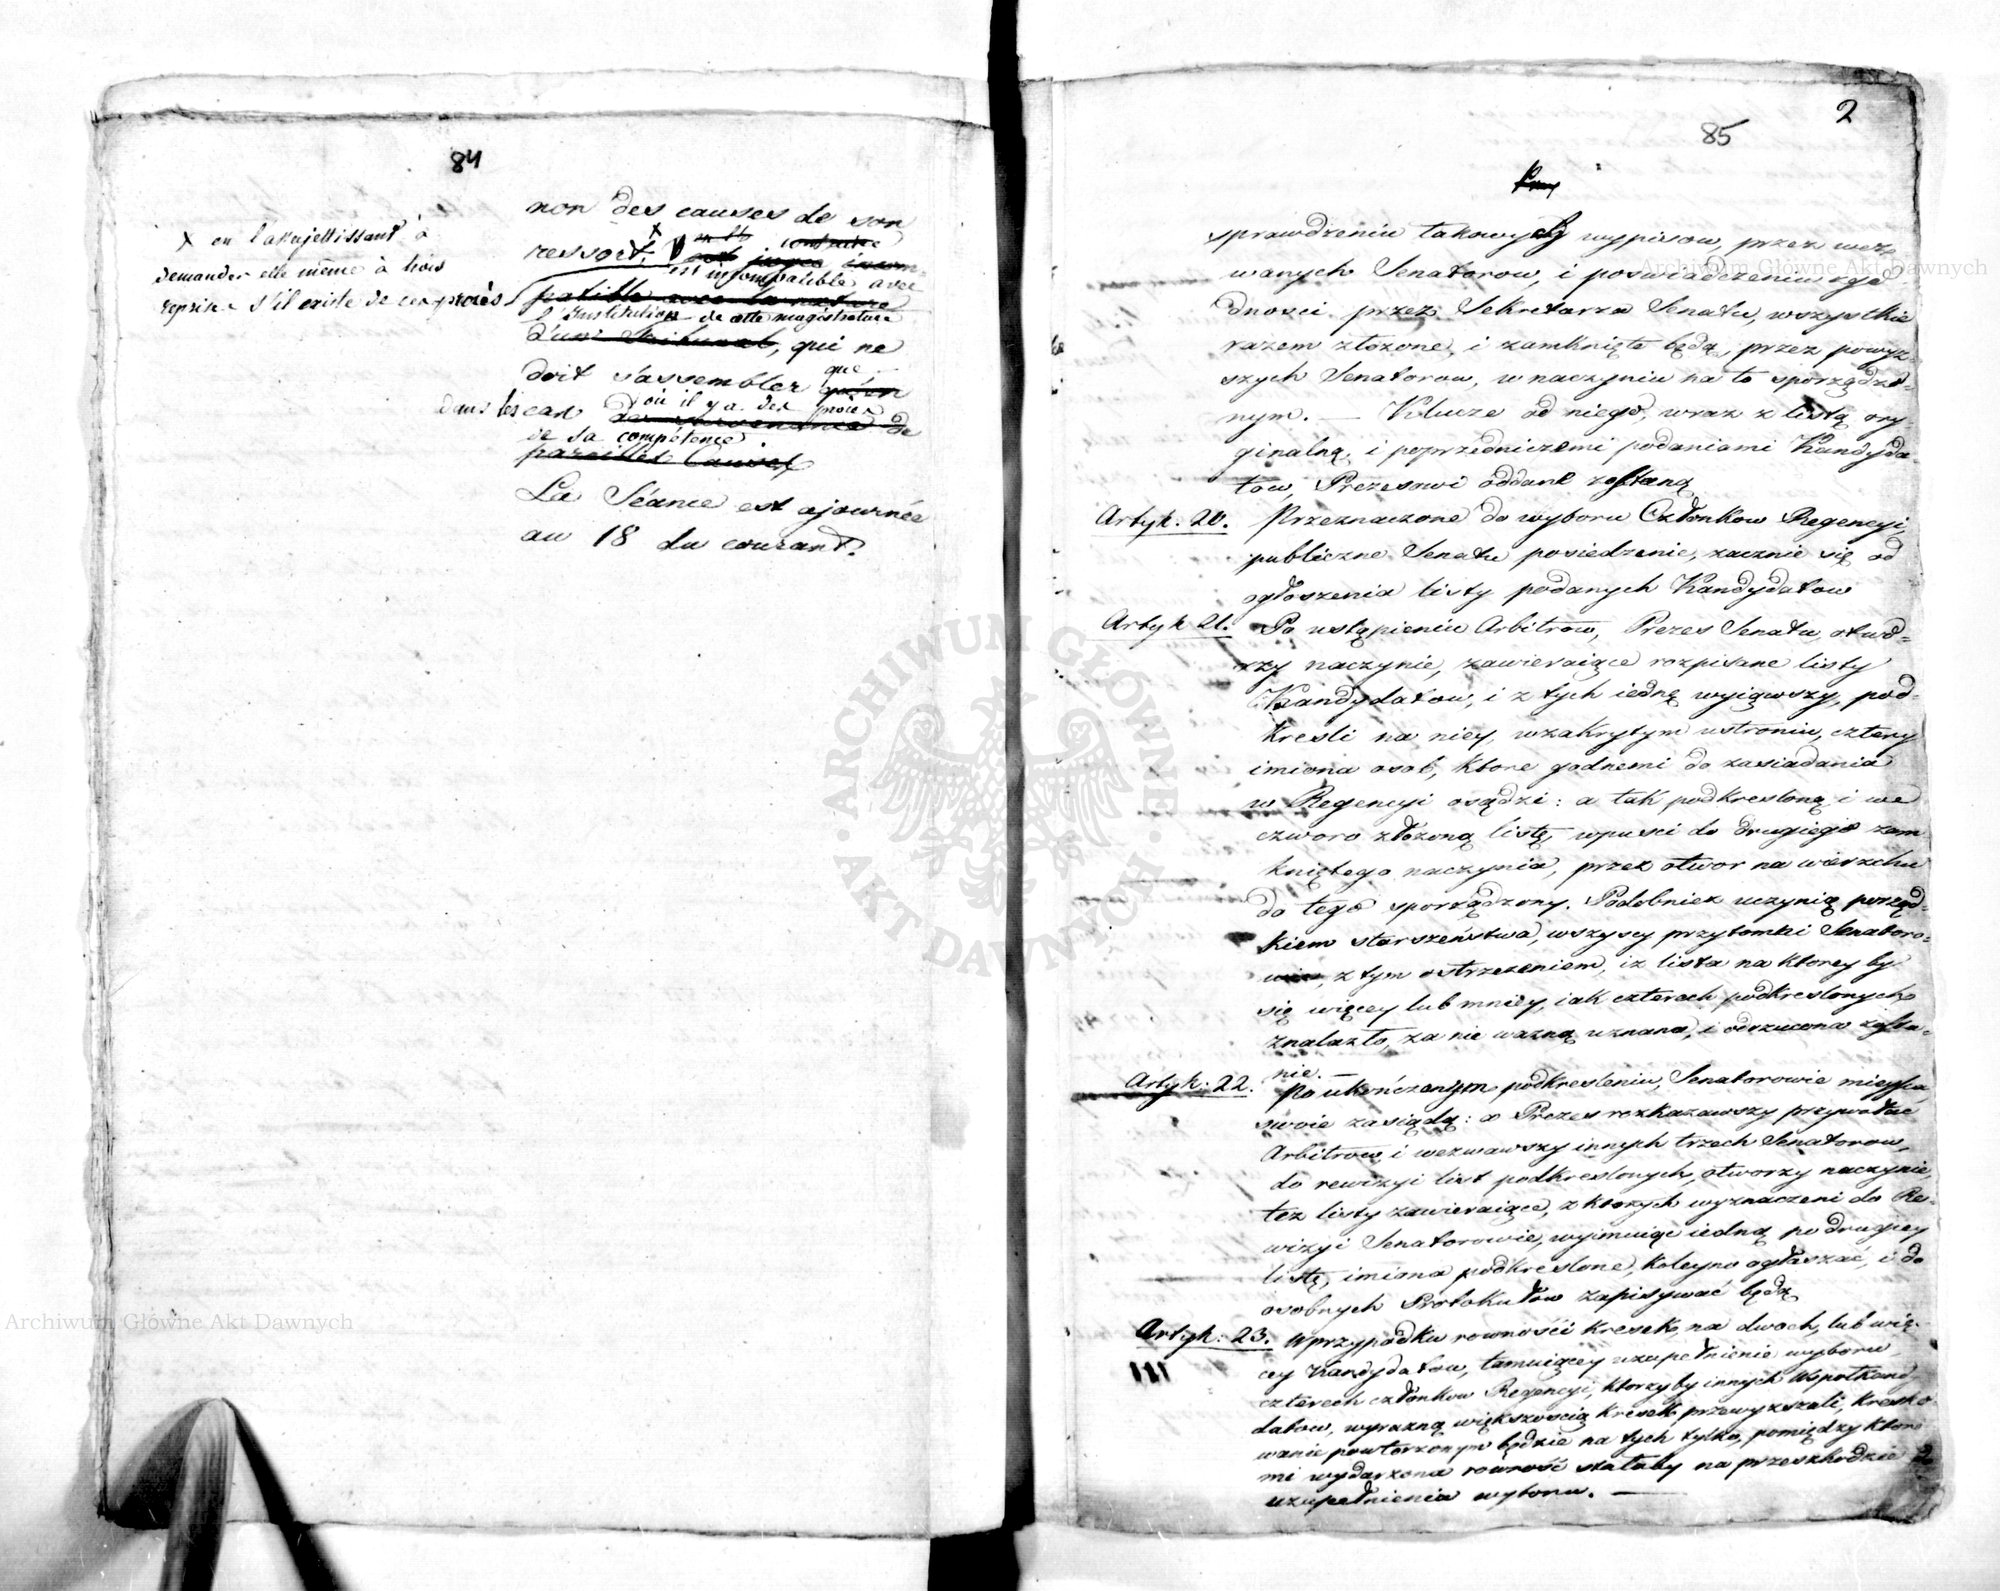 84
non des causes de son
ressort,
est incompatible avec
patible avec la nature
l'Institution de cette magistrature
d'un Tribunal, qui ne
doit s'assembler que
dans les cas où il y a des procès
de sa compétence.
pareilles Causes
La Séance est ajournée
au 18 du courant.
x en l'assujettissant à
demander elle même à trois
reprises s'il existe de ces procès
2
85
Przy
sprawdzeniu takowych wypisow, przez wez-
wanych Senatorow, i poswiadczeniu zgo-
dnosci przez Sekretarza Senatu, wszystkie
razem złożone, i zamknięte będą, przez powyż-
szych Senatorow, w naczyniu na to sporządzo-
nym. — Klucze od niego, wraz z listą ory-
ginalną, i poprzedniczemi podaniami Kandyda-
tow, Prezesowi oddane zostaną
Artyk: 20. Przeznaczone do wyboru Członkow Regencyi
publiczne Senatu posiedzenie, zacznie się od
ogłoszenia listy podanych Kandydatow
Artyk 21. Po ustąpieniu Arbitrow, Prezes Senatu, otwo-
rzy naczynie, zawieraiące rozpisane listy
Kandydatow, i z tych iedną wyiąwszy, pod-
kresli na niey, w zakrytym ustroniu, cztery
imiona osob, ktore godnemi do zasiadania
w Regencyi osądzi: a tak podkresloną i we
czworo złożoną listę, wpusci do drugiego zam-
kniętego naczynia, przez otwor na wierzchu
do tego sporządzony. Podobniez uczynią porząd-
kiem starszeństwa, wszyscy przytomni Senatoro-
wie, z tym ostrzeżeniem, iz lista na ktorey by
się więcey lub mniey, iak czterech podkreslonych
znalazło, za nie ważną uznana, i odrzucona zosta-
nie. —
Artyk: 22. Po ukończonym podkresleniu, Senatorowie mieysca
swoie zasiądą: a Prezes rozkazawszy przywołać
Arbitrow, i wezwawszy innych trzech Senatorow,
do rewizyi list podkreslonych, otworzy naczynie,
też listy zawieraiące, z ktorych wyznaczeni do Re-
wizyi Senatorowie, wyimuiąc iedną po drugiey
listę, imiona podkreslone, koleyno ogłaszać, i do
osobnych Protokułow zapisywać będą
Artyk: 23. W przypadku rowności kresek, na dwoch, lub wię-
cey Kandydatow, tamuiącey uzupełnienie wyboru
czterech członkow Regencyi, ktorzy by innych Wspołkandy-
datow, wyrazną większoscią kresek przewyzszali, kresko-
wanie powtorzonym będzie na tych tylko, pomiędzy ktore-
mi wydarzona rowność stałaby na przeszkodzie
uzupełnienia wyboru. —
Archiwum Główne Akt Dawnych
Archiwum Główne Akt Dawnych
Archiwum Główne Akt Dawnych
ARCHIWUM GŁÓWNE · AKT DAWNYCH ·